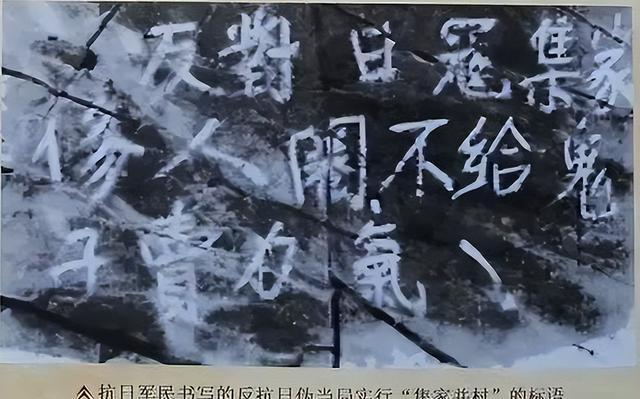 反對日冦集家
傷人圈不给鬼
子賣力氣
抗日军民书写的反抗日伪当局实行“集家并村”的标语